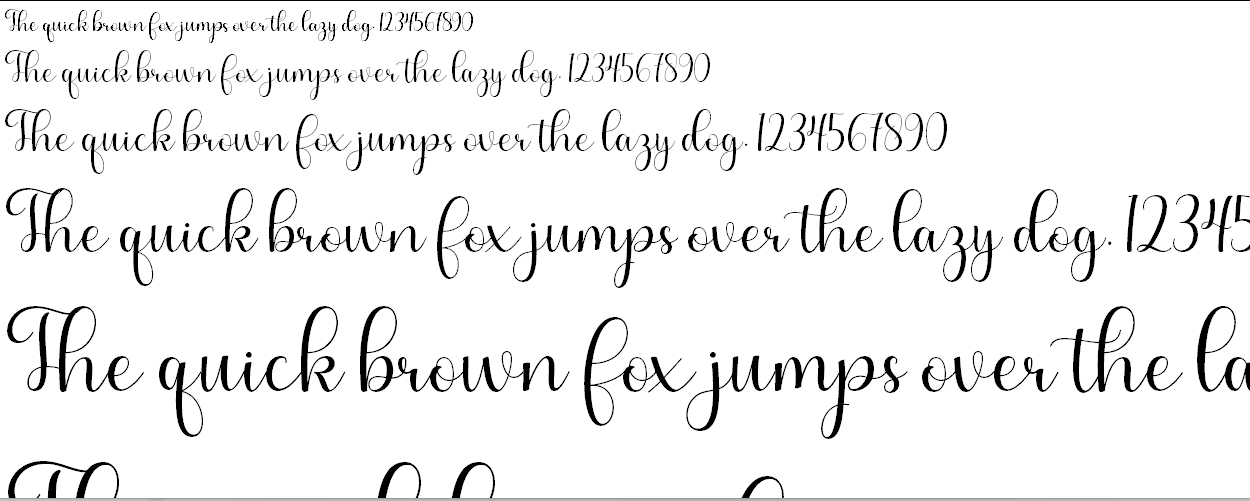 The quick brown fox jumps over the lazy dog. 1234567890
The quick brown fox jumps over the lazy dog. 1234567890
The quick brown fox jumps over the lazy dog. 1234567890
The quick brown fox jumps over the lazy dog. 12345
The quick brown fox jumps over the la